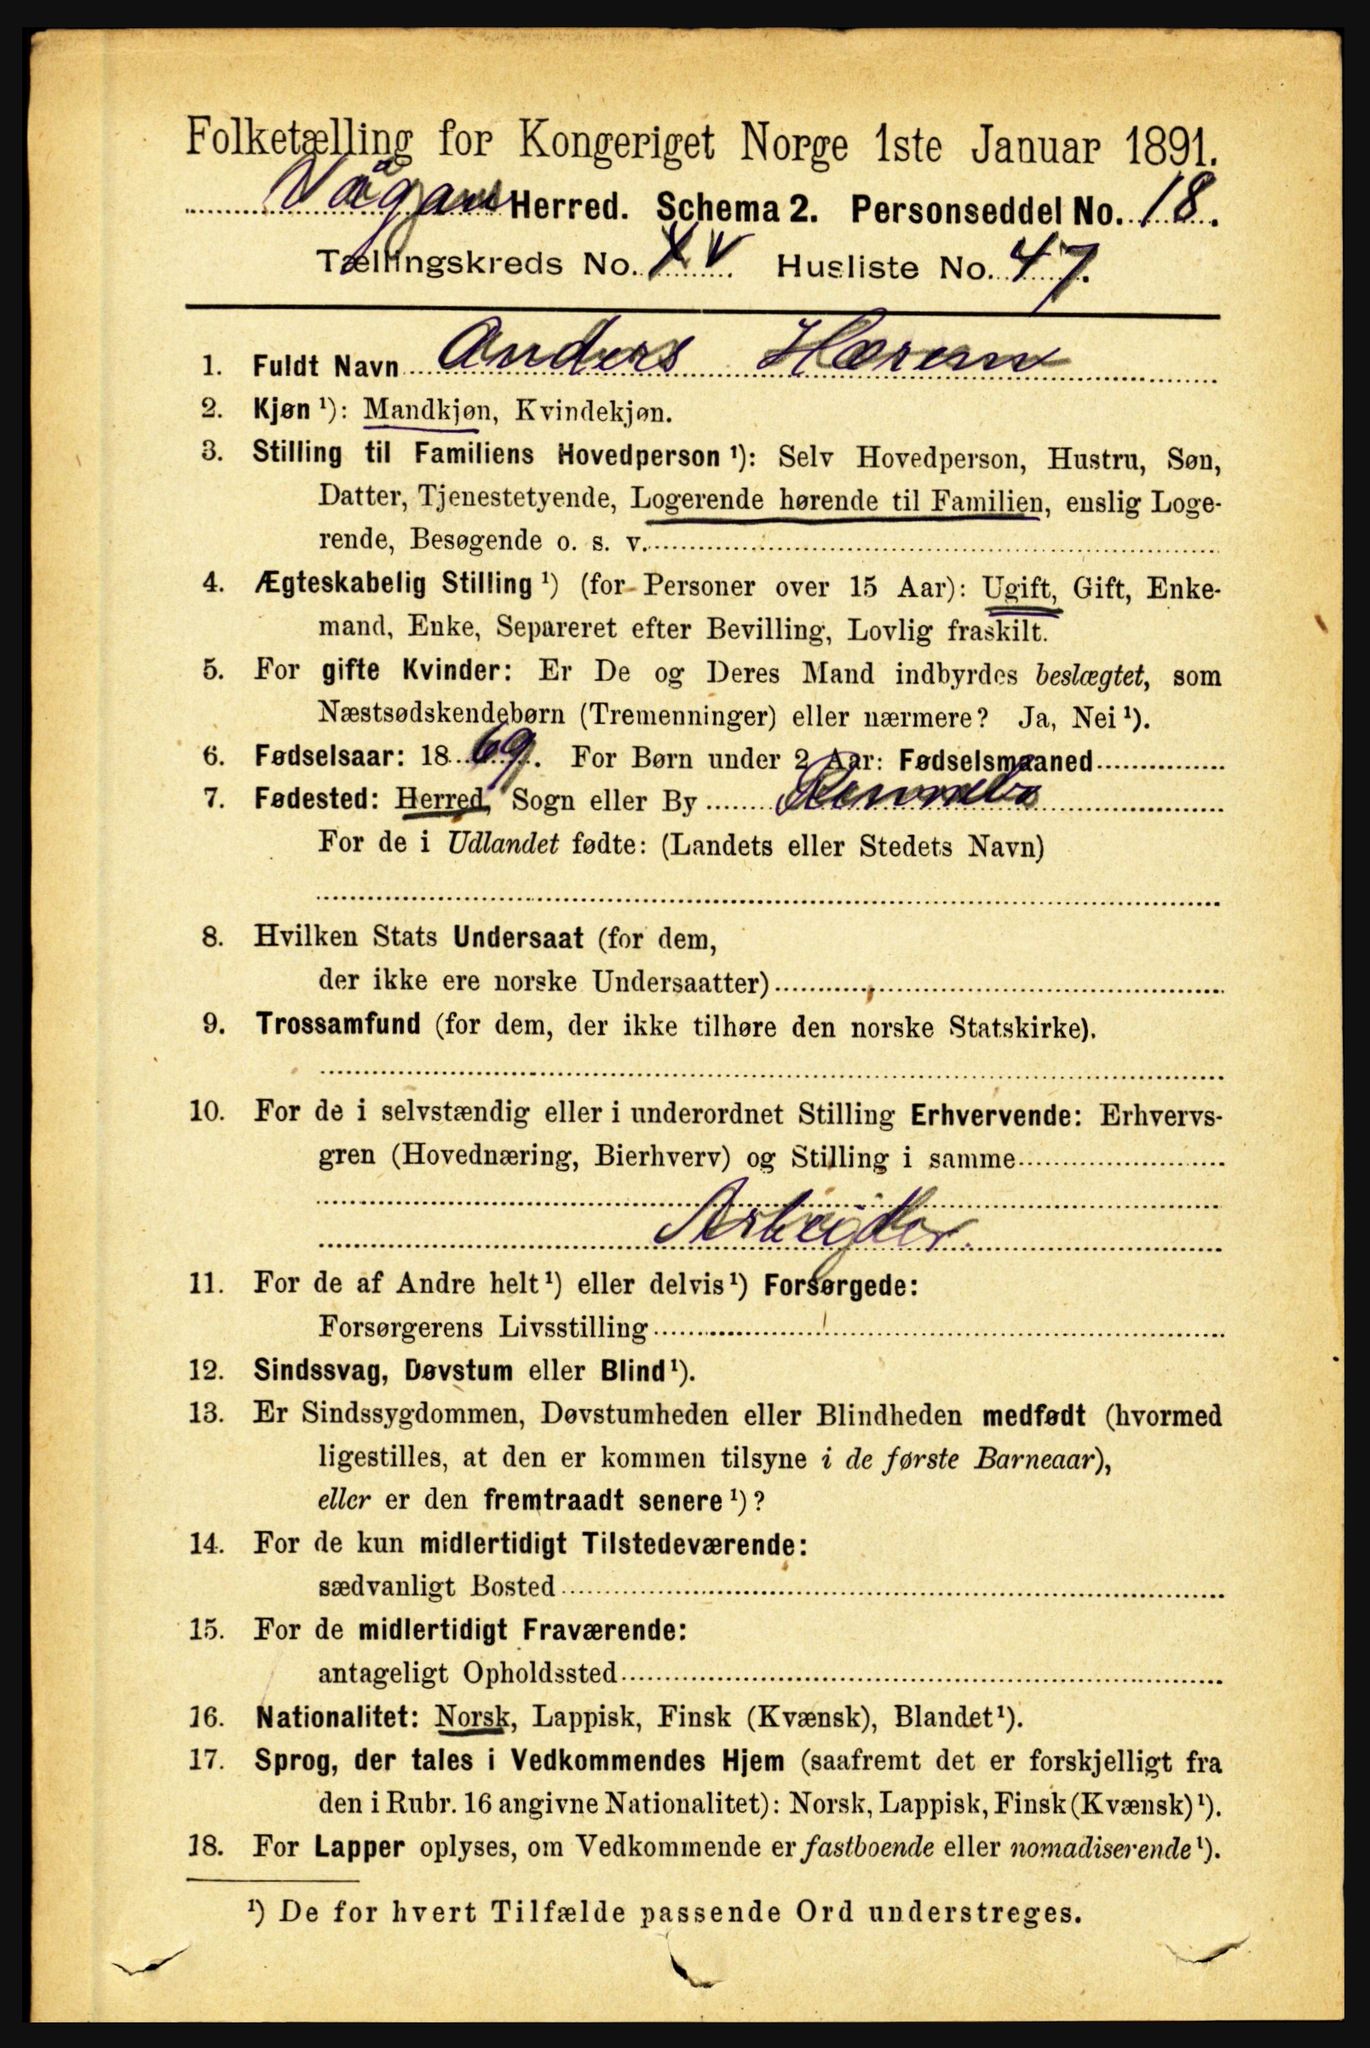 Folketælling for Kongeriget Norge 1ste Januar 1891.
Vågan Herred. Schema 2. Personseddel No. 18.
Tællingskreds No. XV Husliste No. 47.
1. Fuldt Navn Anders Hærem
2. Kjøn ¹): Mandkjøn, Kvindekjøn.
3. Stilling til Familiens Hovedperson ¹): Selv Hovedperson, Hustru, Søn,
Datter, Tjenestetyende, Logerende hørende til Familien, enslig Loge-
rende, Besøgende o. s. v.
4. Ægteskabelig Stilling ¹) (for Personer over 15 Aar): Ugift, Gift, Enke-
mand, Enke, Separeret efter Bevilling, Lovlig fraskilt.
5. For gifte Kvinder: Er De og Deres Mand indbyrdes beslægtet, som
Næstsødskendebørn (Tremenninger) eller nærmere? Ja, Nei ¹).
6. Fødselsaar: 1869. For Børn under 2 Aar: Fødselsmaaned
7. Fødested: Herred, Sogn eller By Rennebo
For de i Udlandet fødte: (Landets eller Stedets Navn)
8. Hvilken Stats Undersaat (for dem,
der ikke ere norske Undersaatter)
9. Trossamfund (for dem, der ikke tilhøre den norske Statskirke).
10. For de i selvstændig eller i underordnet Stilling Erhvervende: Erhvervs-
gren (Hovednæring, Bierhverv) og Stilling i samme
Arbeijder.
11. For de af Andre helt ¹) eller delvis ¹) Forsørgede:
Forsørgerens Livsstilling
12. Sindssvag, Døvstum eller Blind ¹).
13. Er Sindssygdommen, Døvstumheden eller Blindheden medfødt (hvormed
ligestilles, at den er kommen tilsyne i de første Barneaar),
eller er den fremtraadt senere ¹)?
14. For de kun midlertidigt Tilstedeværende:
sædvanligt Bosted
15. For de midlertidigt Fraværende:
antageligt Opholdssted
16. Nationalitet: Norsk, Lappisk, Finsk (Kvænsk), Blandet ¹).
17. Sprog, der tales i Vedkommendes Hjem (saafremt det er forskjelligt fra
den i Rubr. 16 angivne Nationalitet): Norsk, Lappisk, Finsk (Kvænsk) ¹).
18. For Lapper oplyses, om Vedkommende er fastboende eller nomadiserende ¹).
¹) De for hvert Tilfælde passende Ord understreges.